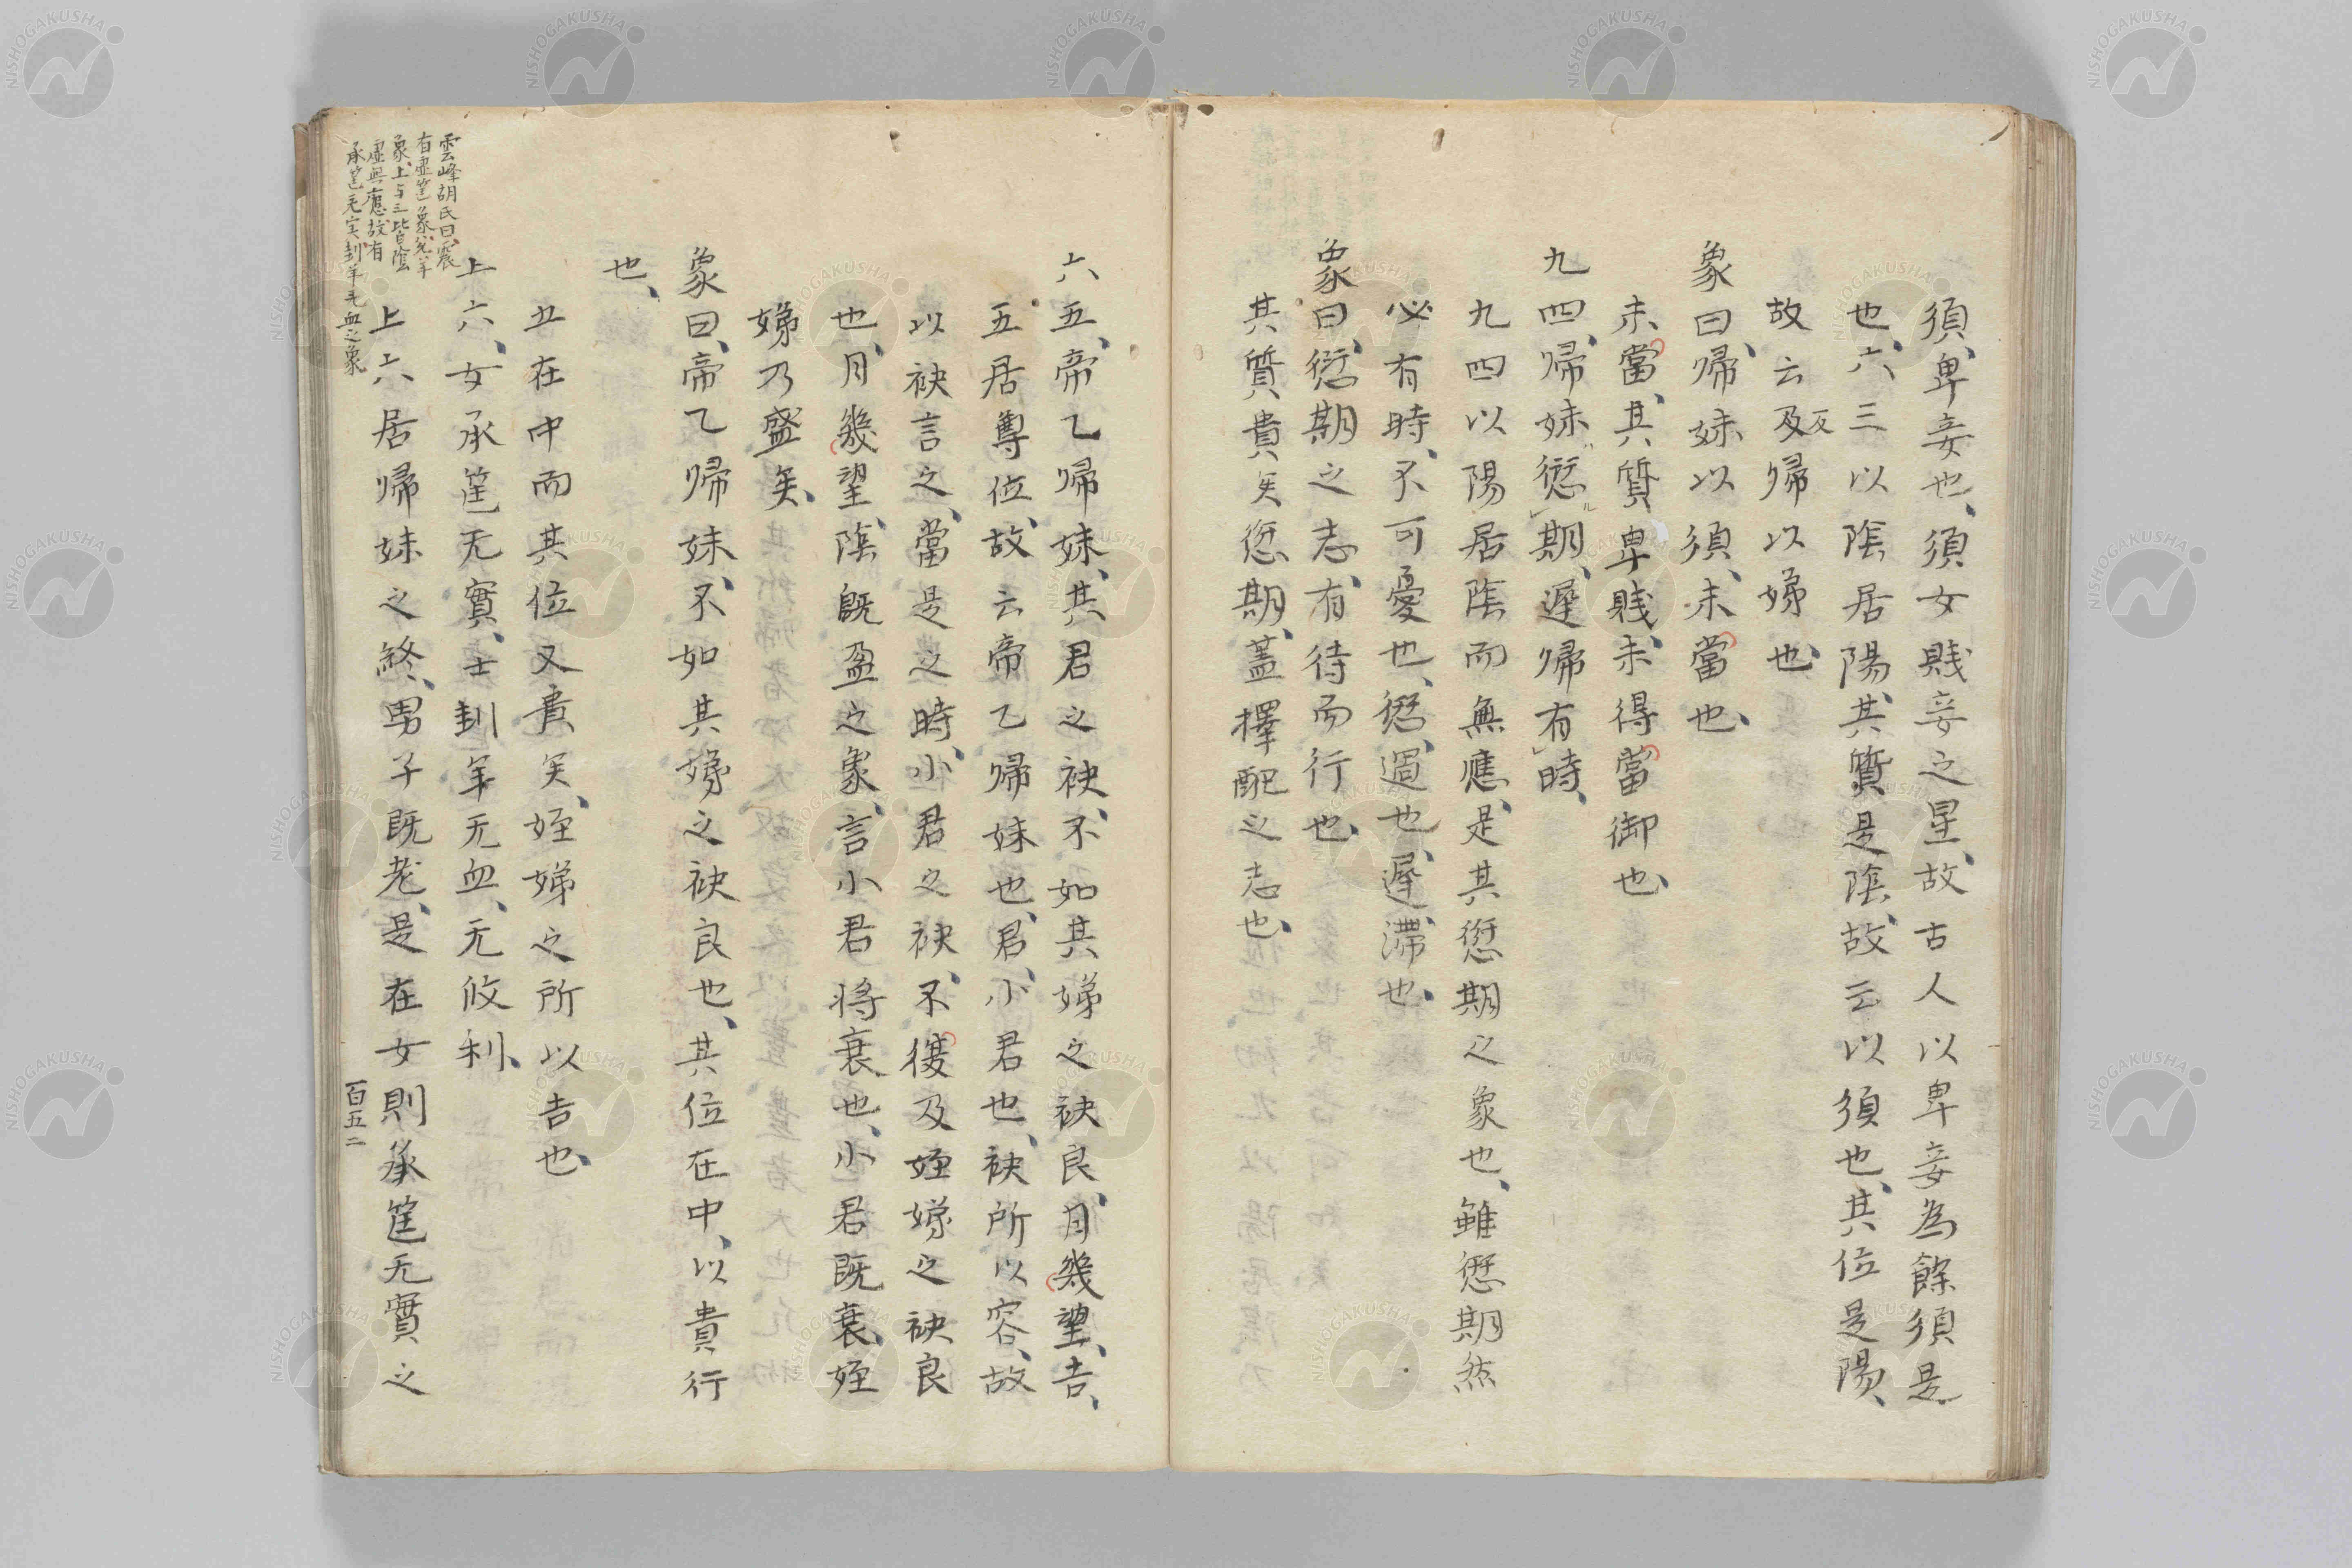 須、卑妾也、須女賎妾之星、故古人以卑妾為餘須是
也、六三以陰居陽、其質是陰、故云以須也、其位是陽、
故云反歸以娣也、
反
象曰、歸妹以須、未當也、
未當、其質卑賎、未得當御也、
九四、歸妹愆期、遲歸有時、
九四以陽居陰而無應、是其愆期之象也、雖愆期然
必有時、不可憂也、愆、過也、遲、滯也、
象曰、愆期之志、有待而行也、
其質貴矣、愆期、蓋擇配之志也、
六五、帝乙歸妹、其君之袂、不如其娣之袂良、月幾望、吉、
五居尊位、故云帝乙歸妹也、君、小君也、袂所以容、故
以袂言之、當是之時、小君之袂、不復及姪娣之袂良
也、月幾望、陰既盈之象、言小君将衰也、小君既衰、姪
娣乃盛矣、
象曰、帝乙歸妹、不如其娣之袂良也、其位在中、以貴行
也、
五在中而其位又貴矣、姪娣之所以吉也、
上六、女承筐无實、士刲羊无血、无攸利、
上六居歸妹之終、男子既老、是在女則承筐无實之
雲峰胡氏曰、震
有虚筐象、兌羊
象、上与三皆陰
虚無應、故有
承筐无実刲羊无血之象
百五二